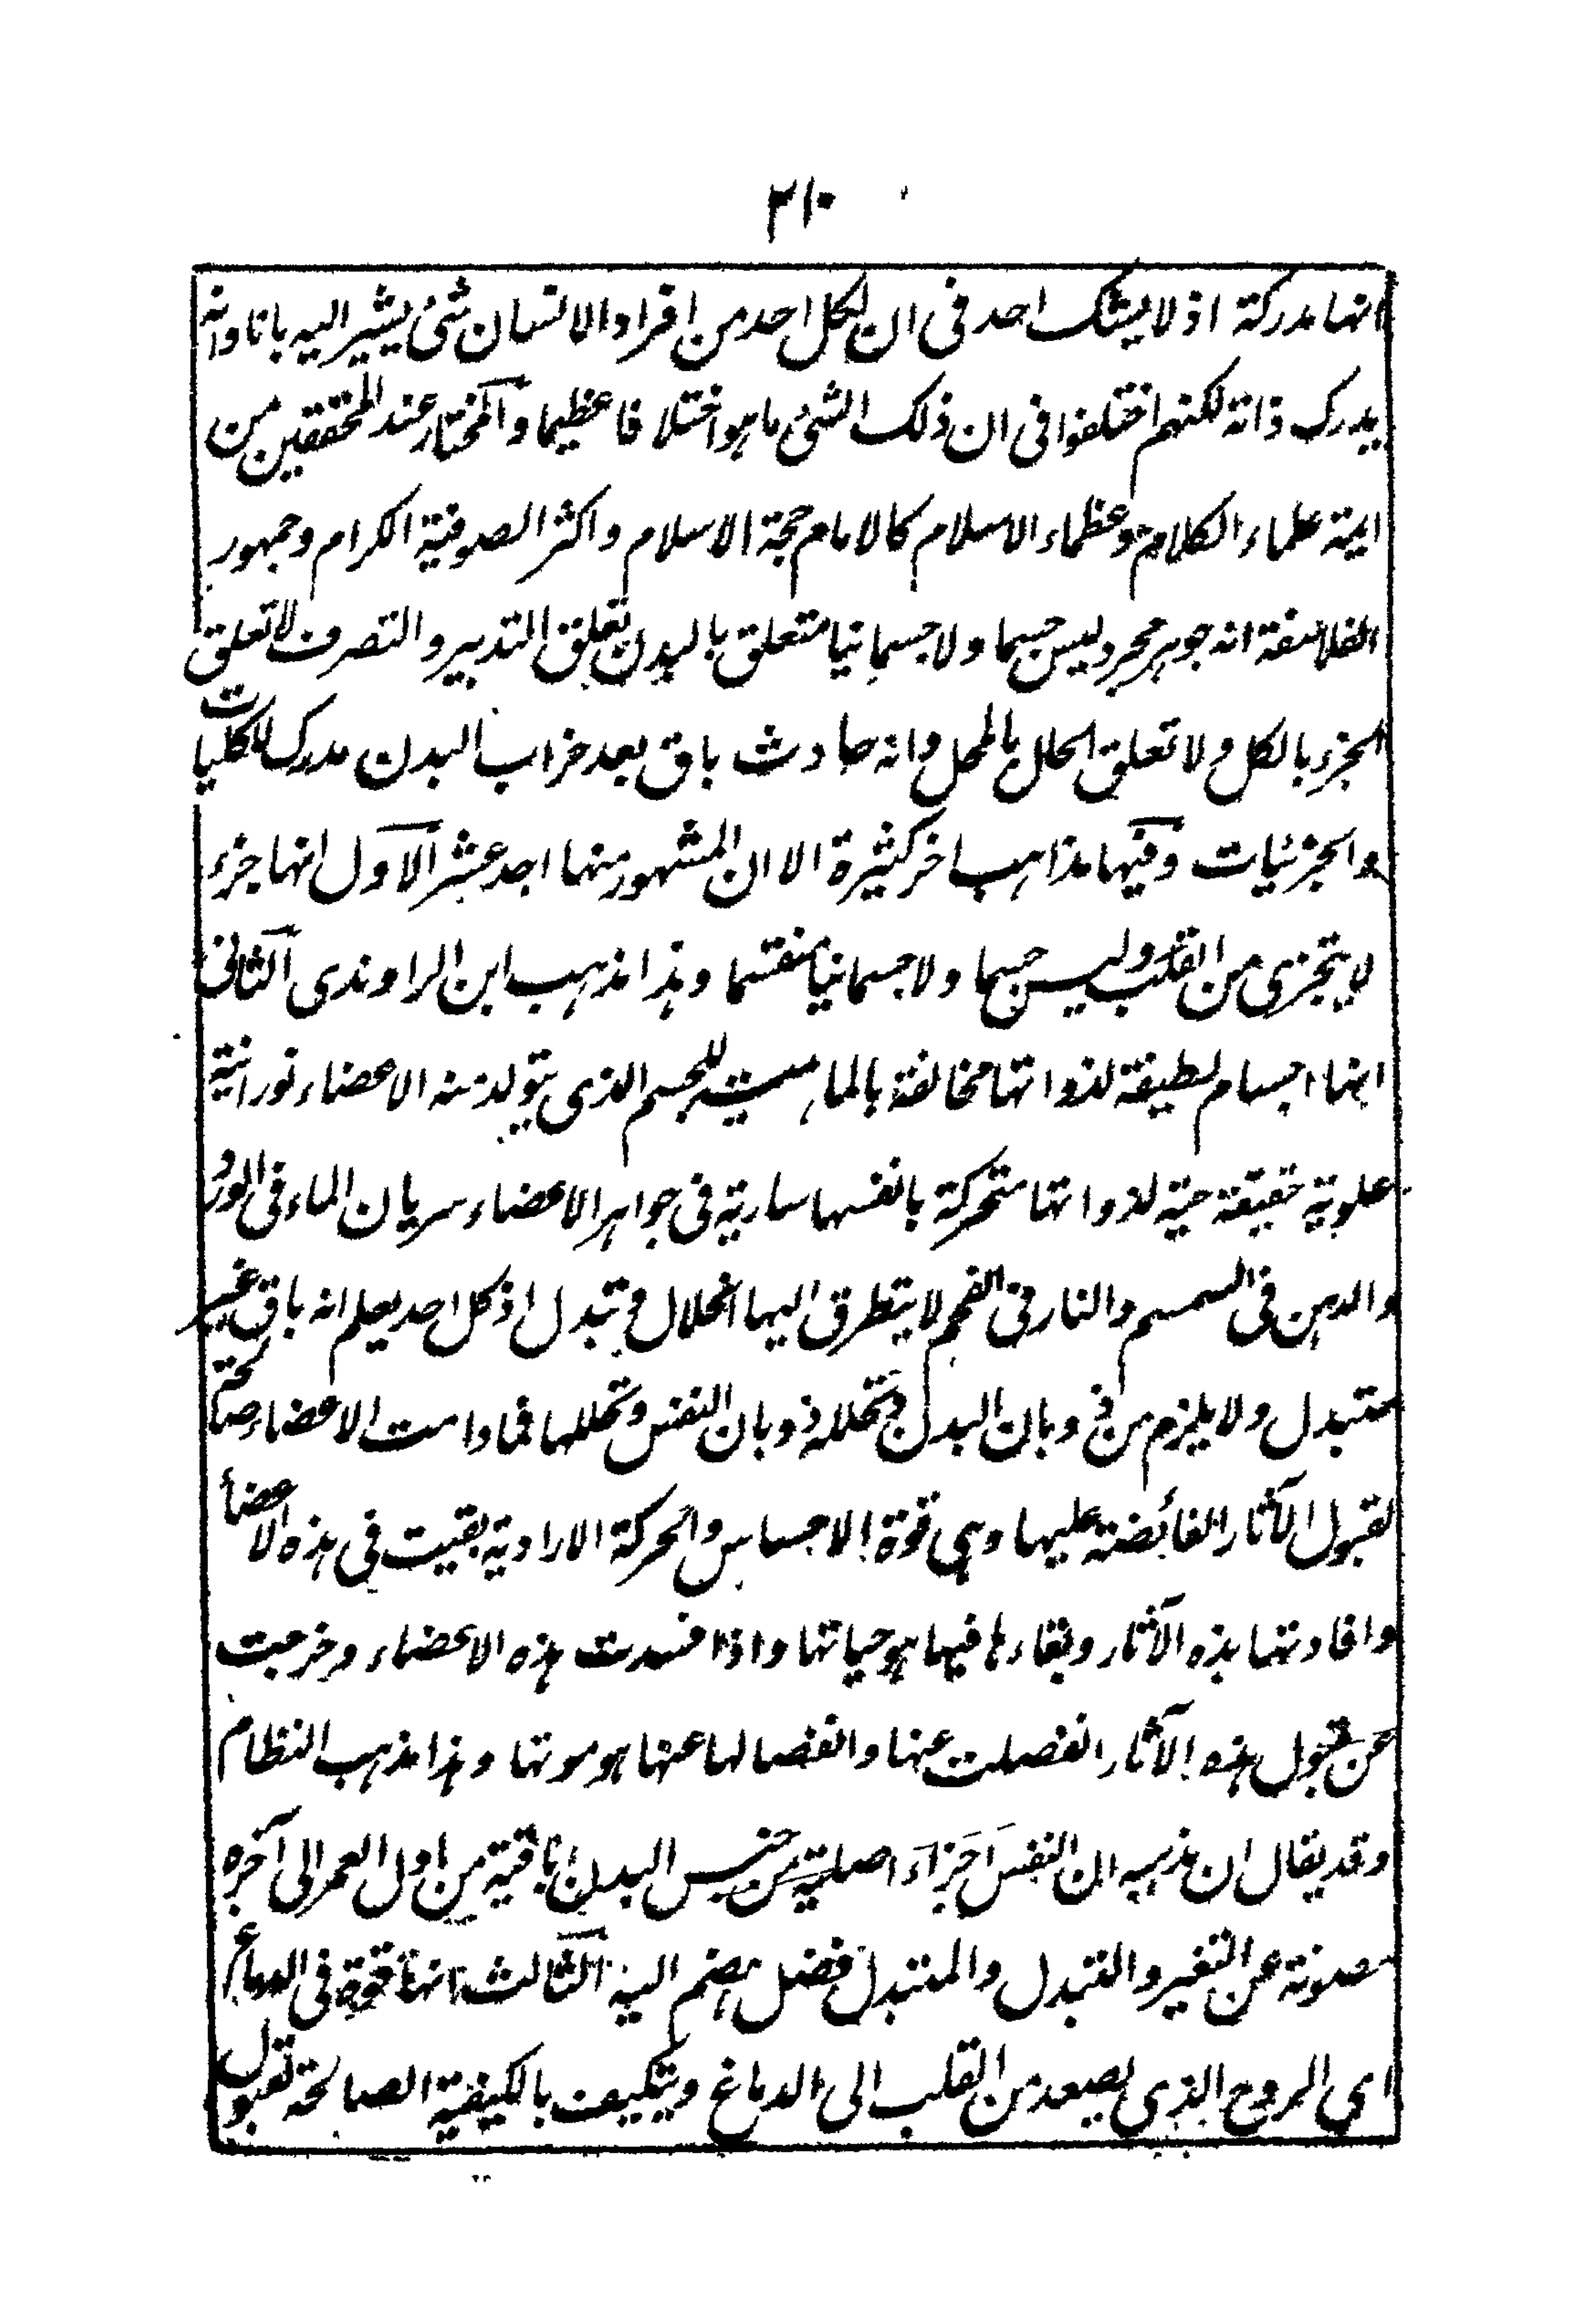 ٢١٠
انها مدركة اذ لا يشك احد فى ان لكل احد من افراد الانسان شئ يشير اليه بانا وانه
يدرك ذاته لكنهم اختلفوا فى ان ذلك الشئ ما هو اختلافا عظيما والمختار عند المحققين من
ايمة علماء الكلام وعظماء الاسلام كالامام حجة الاسلام واكثر الصوفية الكرام وجمهور
الفلاسفة انه جوهر مجرد ليس جسما ولا جسمانيا متعلق بالبدن تعلق التدبير والتصرف لا تعلق
الجزء بالكل ولا تعلق الحال بالمحل وانه حادث باق بعد خراب البدن مدرك للكليات
والجزئيات وفيها مذاهب اخر كثيرة الا ان المشهور منها احد عشر الاول انها جزء
لا يتجزى من القلب وليس جسما ولا جسمانيا منقسما وهذا مذهب ابن الراوندى الثانى
انها اجسام لطيفة لذواتها مخالفة بالماهية للجسم الذى يتولد منه الاعضاء نورانية
علوية خفيفة حية لذواتها متحركة بانفسها سارية فى جواهر الاعضاء سريان الماء فى الورد
والدهن فى السمسم والنار فى الفحم لا يتطرق اليها انحلال و تبدل اذ كل احد يعلم انه باق غير
متبدل ولا يلزم من ذوبان البدل وتحلله ذوبان النفس وتحللها فما دامت الاعضاء صالحة
لقبول الآثار الفائضة عليها وهى قوة الاحساس والحركة الارادية بقيت فى هذه الاعضاء
وافادتها هذه الآثار وبقاءها فيها هو حياتها واذا فسدت هذه الاعضاء وخرجت
عن قبول هذه الآثار انفصلت عنها وانفصالها عنها هو موتها وهذا مذهب النظام
وقد يقال ان مذهبه ان النفس اجزاء اصلية من جنس البدن باقية من اول العمر الى آخره
مصونة عن التغير والتبدل والمتبدل فضل ينضم اليه الثالث انها قوة فى الدماغ
اى الروح الذى يصعد من القلب الى الدماغ ويتكيف بالكيفية الصالحة لقبول